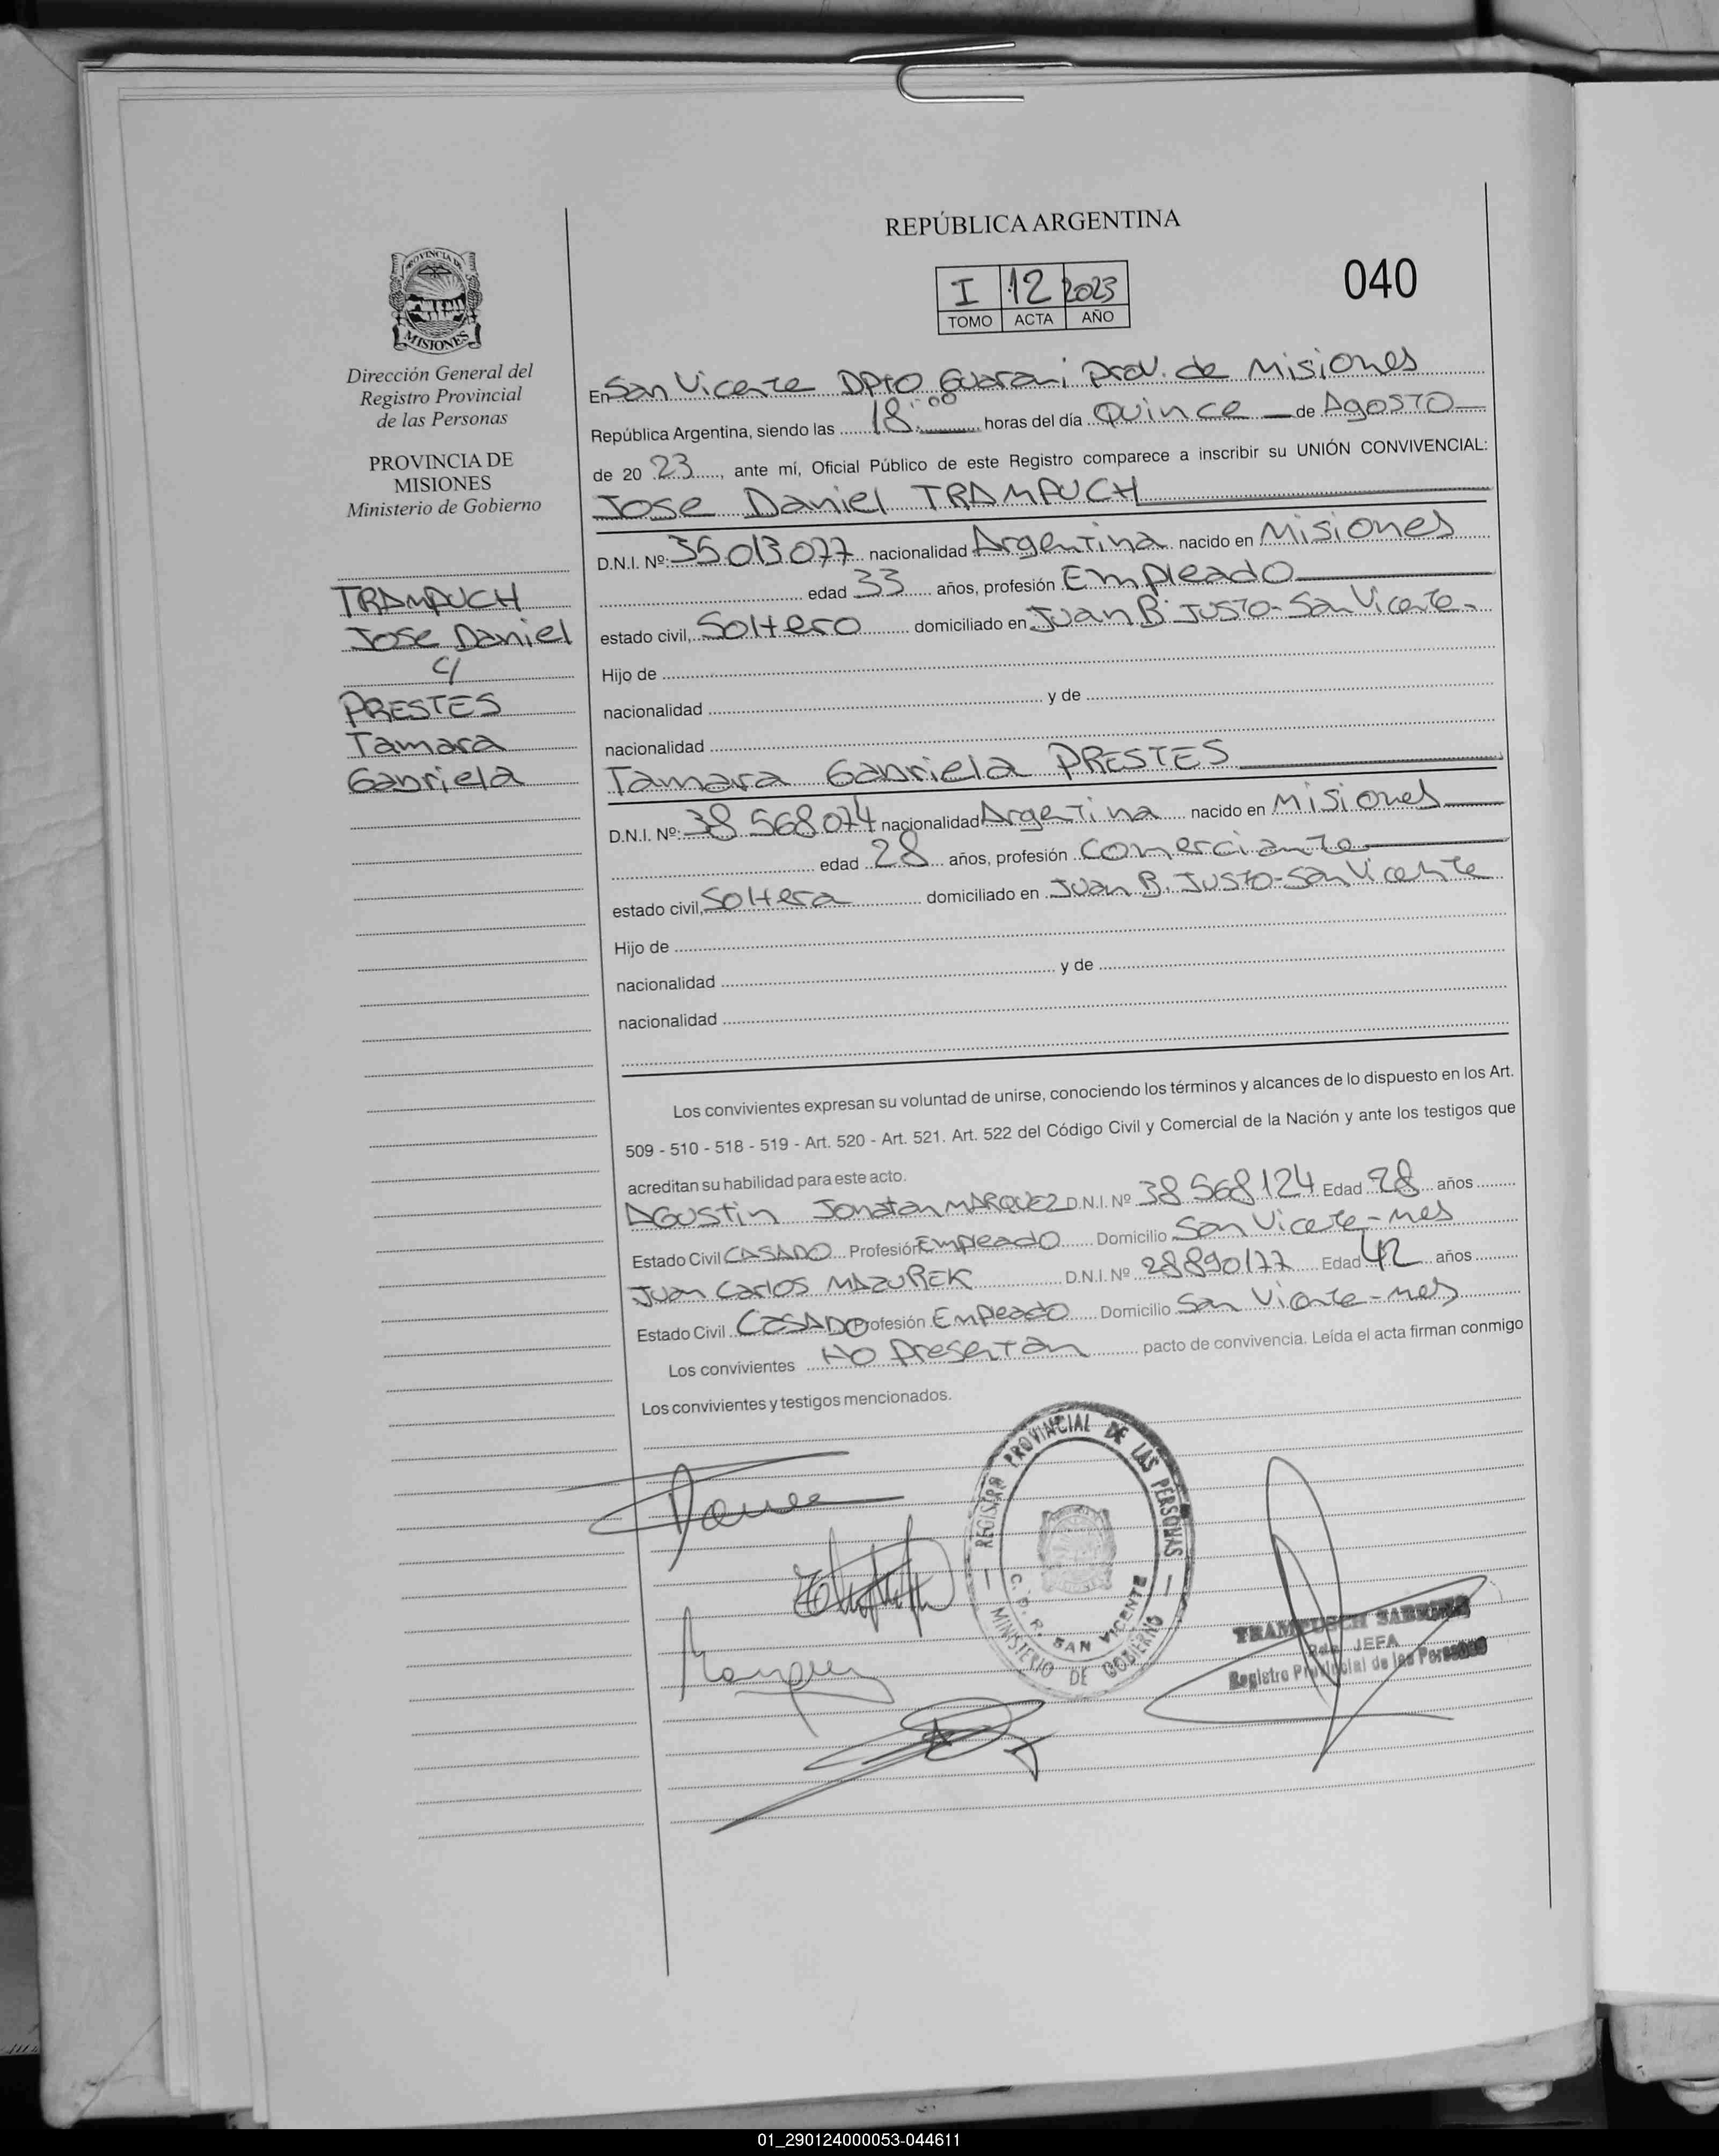 REPÚBLICA ARGENTINA
040
I 12 2023
TOMO ACTA AÑO
PROVINCIA DE
MISIONES
Dirección General del
Registro Provincial
de las Personas
PROVINCIA DE
MISIONES
Ministerio de Gobierno
TRAMPUCH
Jose Daniel
c/
PRESTES
Tamara
Gabriela
En San Vicente DPTO Guarani Prov. de Misiones
República Argentina, siendo las 18:00 horas del día Quince de Agosto
de 20 23, ante mí, Oficial Público de este Registro comparece a inscribir su UNIÓN CONVIVENCIAL:
Jose Daniel TRAMPUCH
D.N.I. Nº: 35.013.077 nacionalidad Argentina nacido en Misiones
edad 33 años, profesión Empleado
estado civil, Soltero domiciliado en Juan B. Justo-San Vicente-
Hijo de
nacionalidad y de
nacionalidad
Tamara Gabriela PRESTES
D.N.I. Nº: 38 568.074 nacionalidad Argentina nacido en Misiones
edad 28 años, profesión Comerciante
estado civil, Soltera domiciliado en Juan B. Justo-San Vicente
Hijo de
nacionalidad y de
nacionalidad
Los convivientes expresan su voluntad de unirse, conociendo los términos y alcances de lo dispuesto en los Art.
509 - 510 - 518 - 519 - Art. 520 - Art. 521. Art. 522 del Código Civil y Comercial de la Nación y ante los testigos que
acreditan su habilidad para este acto.
AGUSTIN Jonatan MARQUEZ D.N.I. Nº 38 568 124 Edad 28 años
Estado Civil CASADO Profesión Empleado Domicilio San Vicente-Mes
Juan Carlos MAZUREK D.N.I. Nº 28890177 Edad 42 años
Estado Civil CASADO Profesión Empleado Domicilio San Vicente-Mes
Los convivientes No Presentan pacto de convivencia. Leída el acta firman conmigo
Los convivientes y testigos mencionados.
REGISTRO PROVINCIAL DE LAS PERSONAS
C. D. R. SAN VICENTE
MINISTERIO DE GOBIERNO
TRAMPUSCH SABRINA
JEFA
Registro Provincial de las Personas
01_290124000053-044611